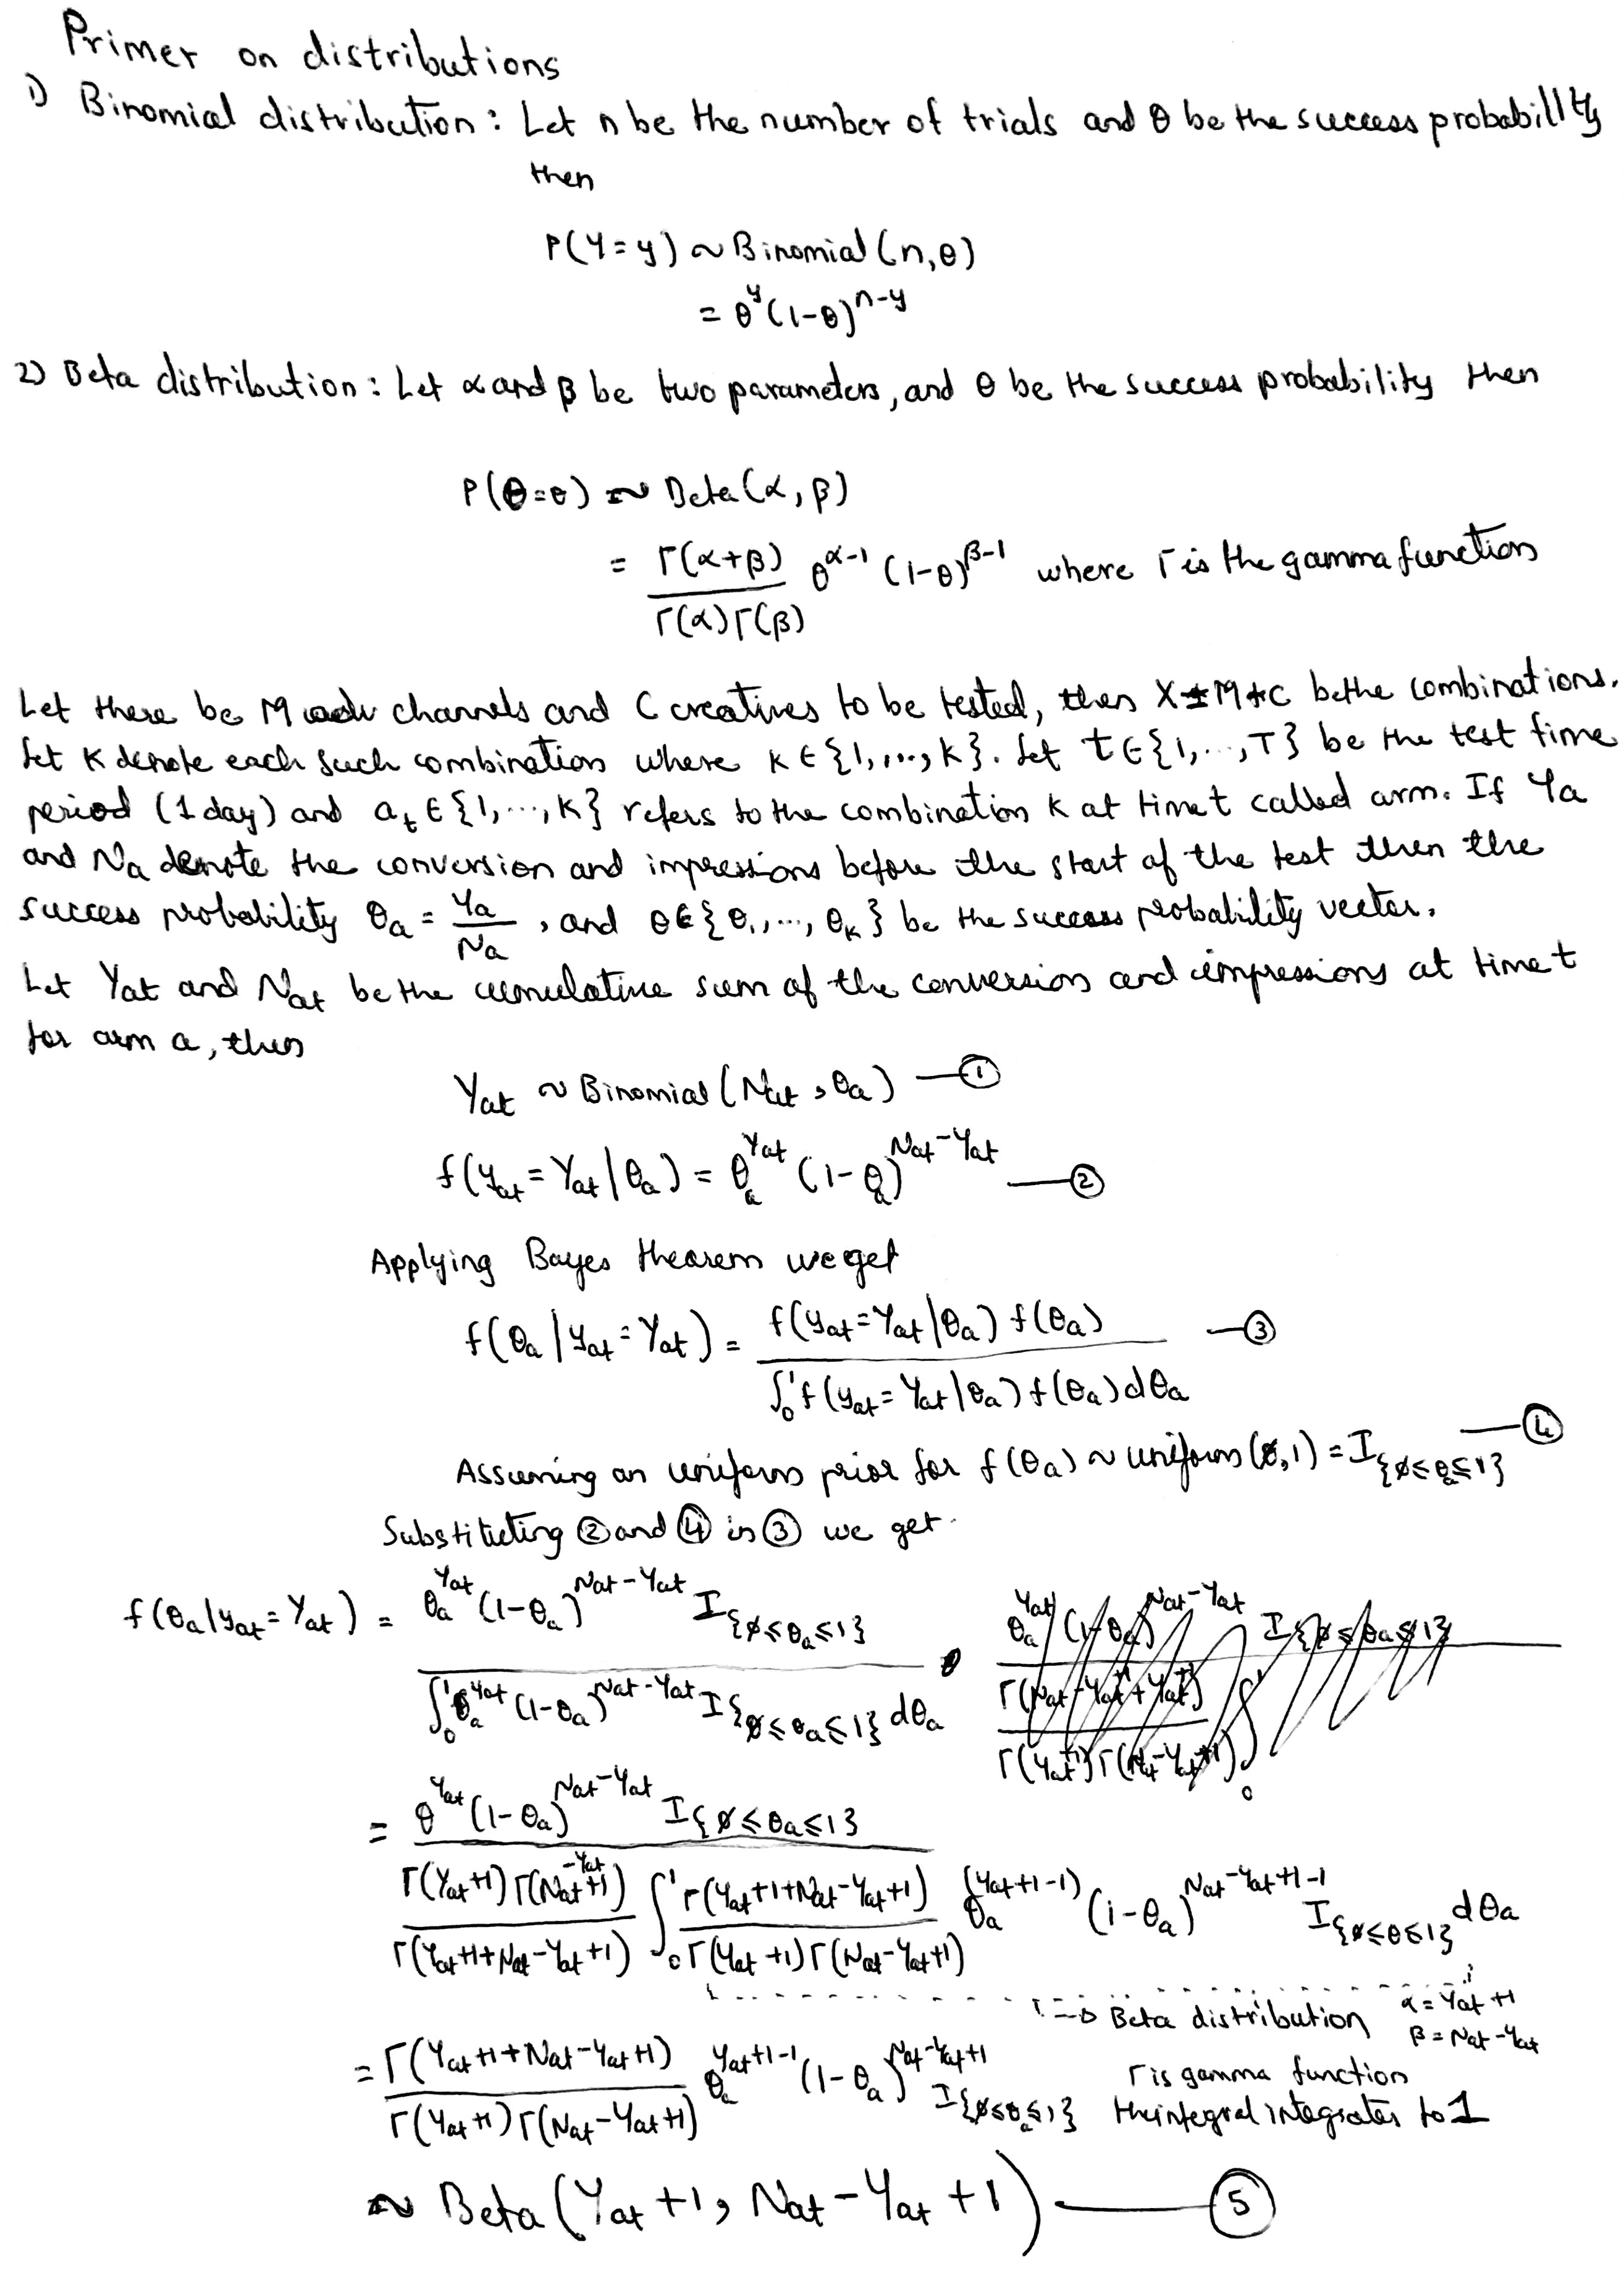 Primer on distributions
1) Binomial distribution: Let n be the number of trials and θ be the success probability
then
P(Y=y) ~ Binomial(n,θ)
= θ^y (1-θ)^{n-y}
2) Beta distribution: Let α and β be two parameters, and θ be the success probability then
P(Θ=θ) ~ Beta(α, β)
= Γ(α+β) / Γ(α)Γ(β) θ^{α-1} (1-θ)^{β-1} where Γ is the gamma function
Let there be M adv channels and C creatives to be tested, then X=M*C be the combinations.
Let K denote each such combination where k ∈ {1,...,K}. Let t ∈ {1,...,T} be the test time
period (1 day) and a_t ∈ {1,...,K} refers to the combination K at time t called arm. If Y_a
and N_a denote the conversion and impressions before the start of the test then the
success probability θ_a = Y_a / N_a, and θ ∈ {θ_1,...,θ_K} be the success probability vector.
Let Y_at and N_at be the cumulative sum of the conversion and impressions at time t
for arm a, then
Y_at ~ Binomial(N_at, θ_a) —①
f(y_at = Y_at | θ_a) = θ_a^{Y_at} (1-θ_a)^{N_at-Y_at} —②
Applying Bayes theorem we get
f(θ_a | y_at = Y_at) = f(y_at = Y_at | θ_a) f(θ_a) / ∫_0^1 f(y_at = Y_at | θ_a) f(θ_a) dθ_a —③
Assuming an uniform prior for f(θ_a) ~ uniform(0,1) = I_{0≤θ_a≤1} —④
Substituting ② and ④ in ③ we get.
f(θ_a | y_at = Y_at) = θ_a^{Y_at} (1-θ_a)^{N_at-Y_at} I_{0≤θ_a≤1} / ∫_0^1 θ_a^{Y_at} (1-θ_a)^{N_at-Y_at} I_{0≤θ_a≤1} dθ_a
= θ^{Y_at} (1-θ_a)^{N_at-Y_at} I_{0≤θ_a≤1} / Γ(Y_at+1)Γ(N_at-Y_at+1) / Γ(Y_at+1+N_at-Y_at+1) ∫_0^1 Γ(Y_at+1+N_at-Y_at+1) / Γ(Y_at+1)Γ(N_at-Y_at+1) θ_a^{(Y_at+1-1)} (1-θ_a)^{N_at-Y_at+1-1} I_{0≤θ≤1} dθ_a
→ Beta distribution α = Y_at+1
β = N_at-Y_at
= Γ(Y_at+1+N_at-Y_at+1) / Γ(Y_at+1)Γ(N_at-Y_at+1) θ_a^{Y_at+1-1} (1-θ_a)^{N_at-Y_at+1} I_{0≤θ_a≤1}
Γ is gamma function
the integral integrates to 1
~ Beta(Y_at+1, N_at-Y_at+1) —⑤